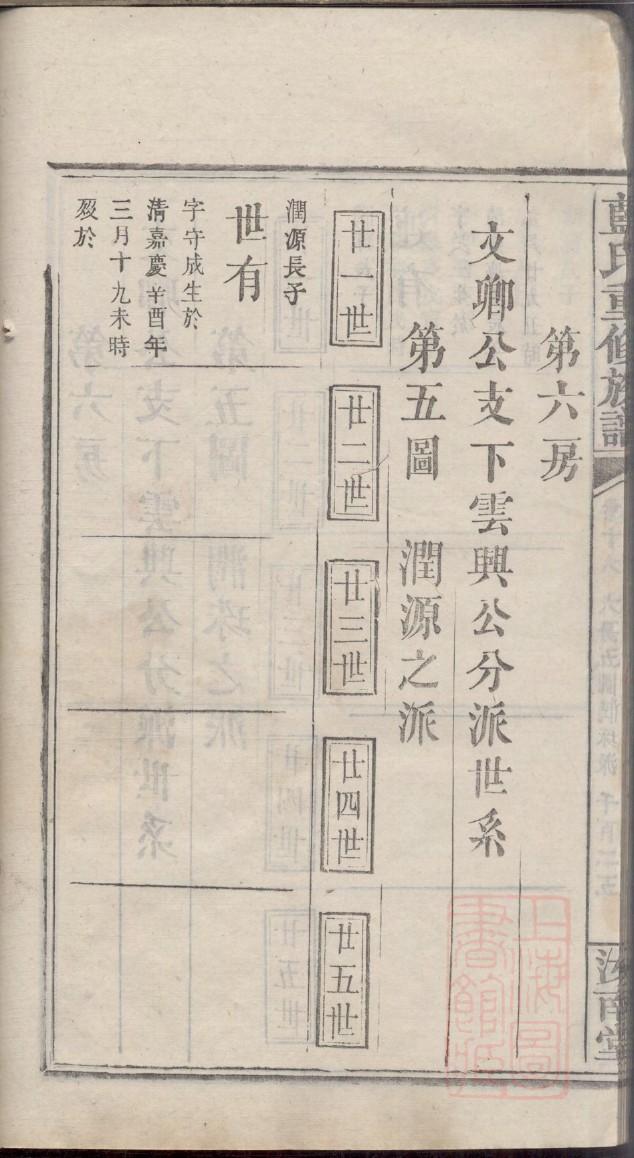 藍氏重修族譜
汝南堂
第六房
文卿公支下雲興公分派世系
第五圖　潤源之派
廿一世
廿二世
廿三世
廿四世
廿五世
潤源長子
世有
字守成生於
清嘉慶辛酉年
三月十九未時
歿於
上海圖
書館藏